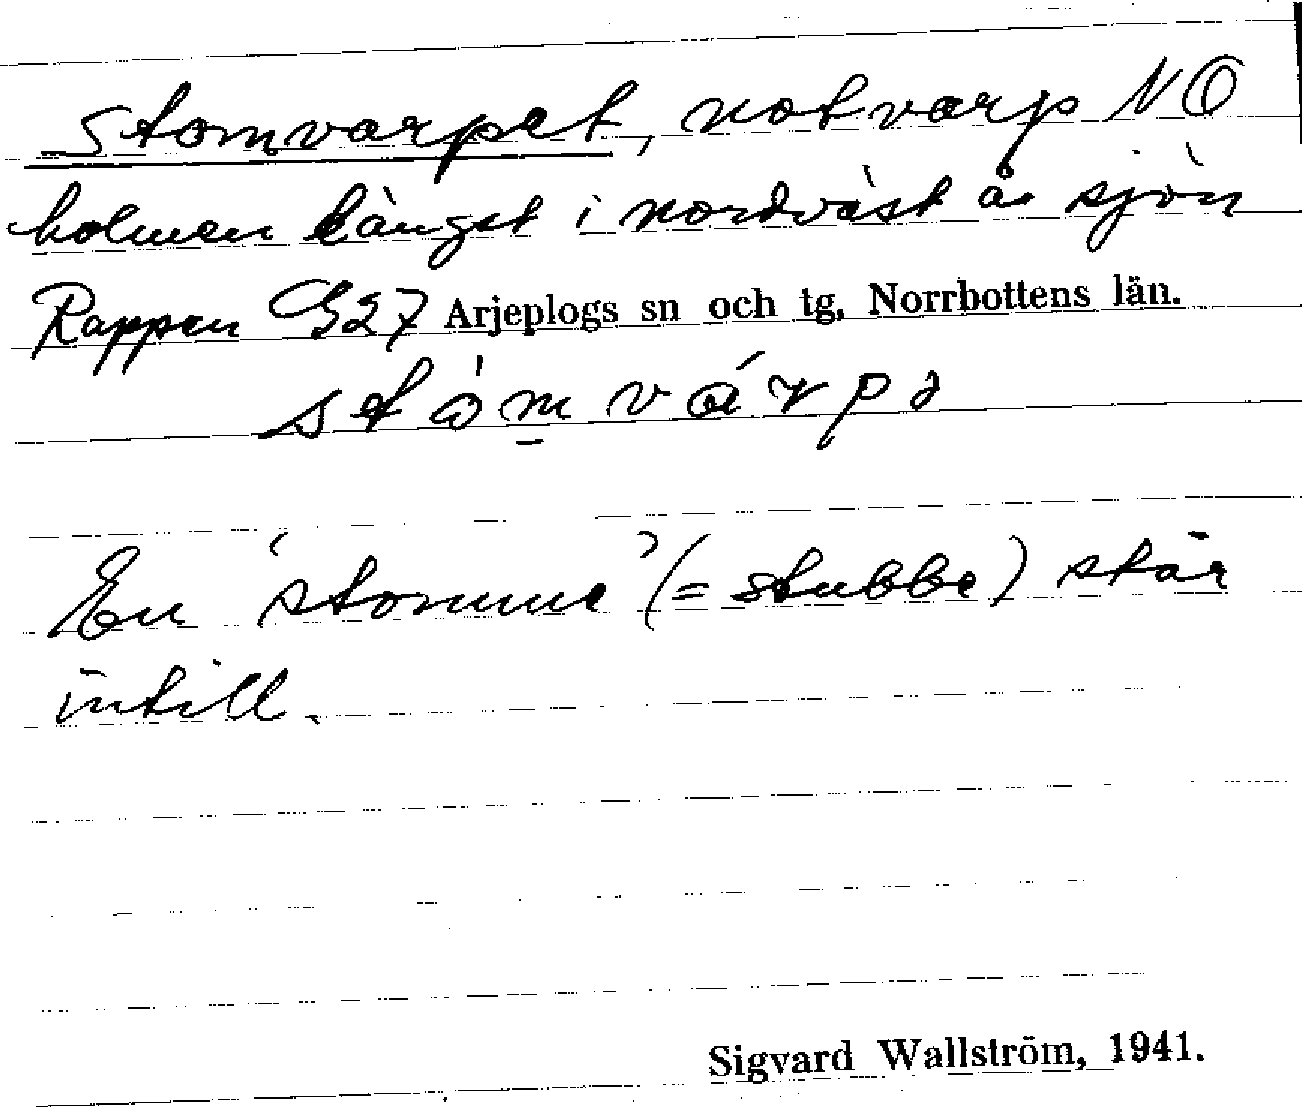 Stomvarpet, notvarp NO
holmen längst i nordväst å sjön
Rappen G27 Arjeplogs sn och tg, Norrbottens län.
stòm̲várpə
En 'stomme' (= stubbe) står
intill.
Sigvard Wallström, 1941.